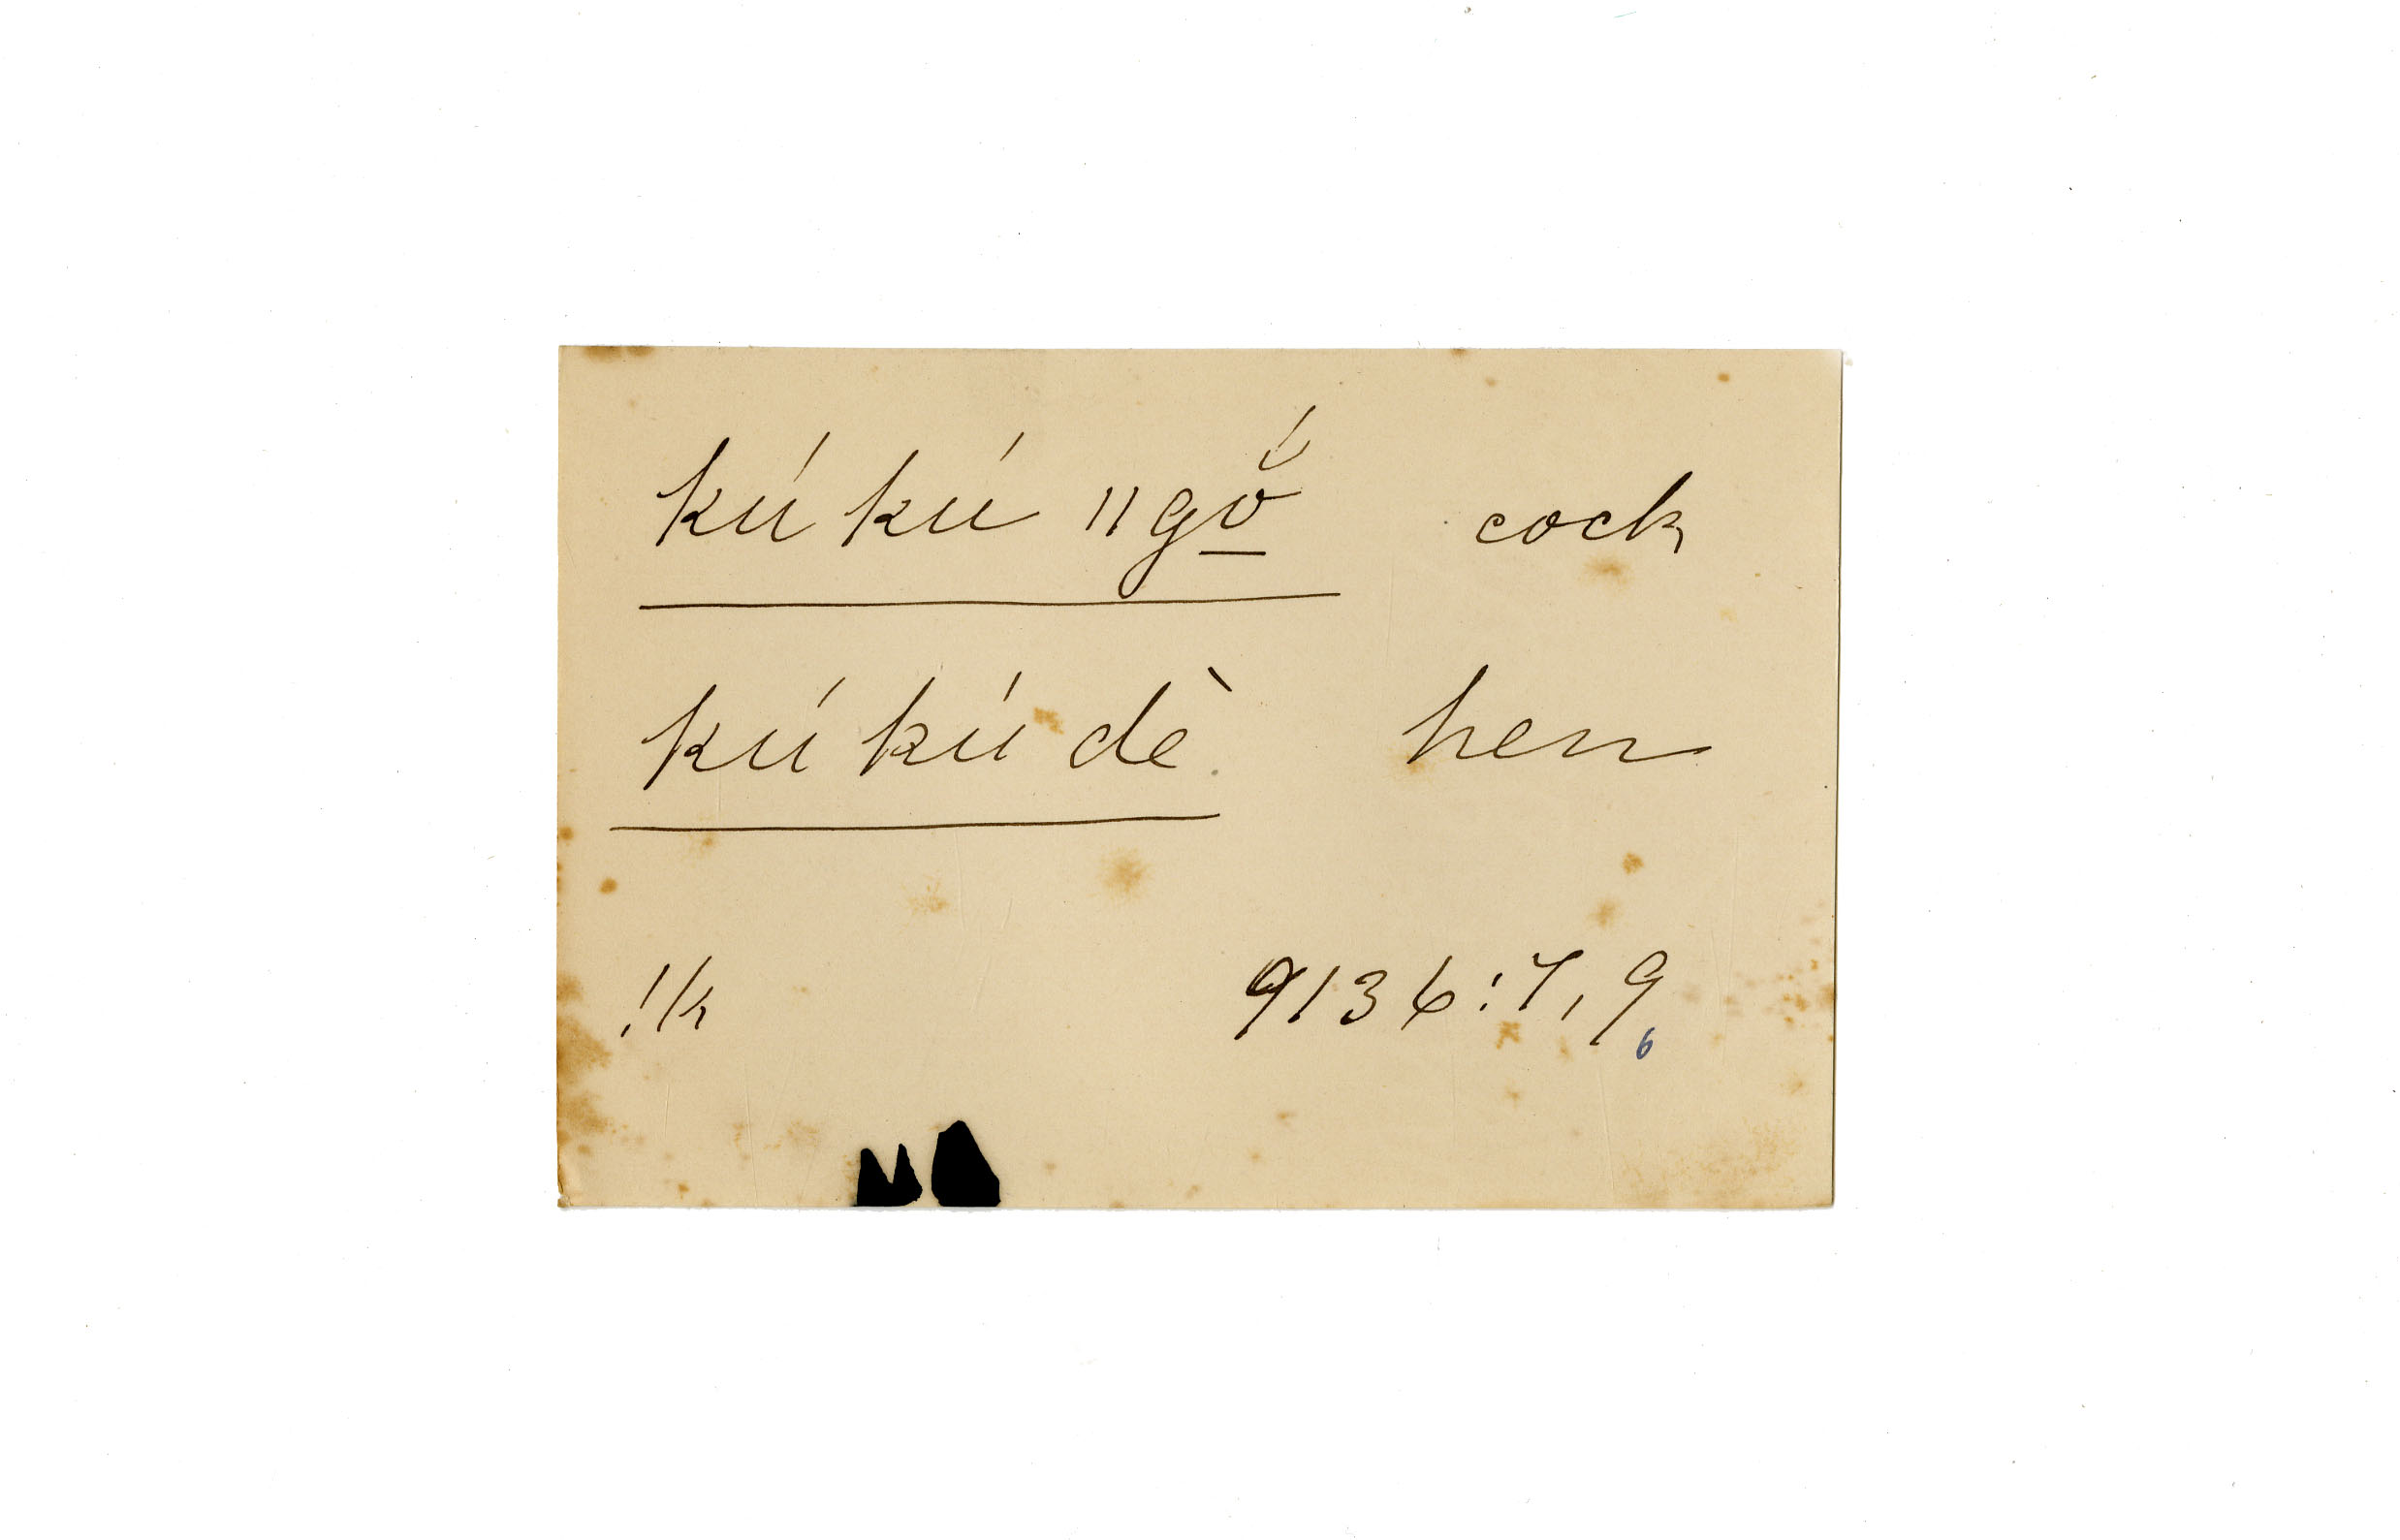 kú kú ǁgŏ̱̯́ cock
kú kú dè hen
!k 9136:7,9
6